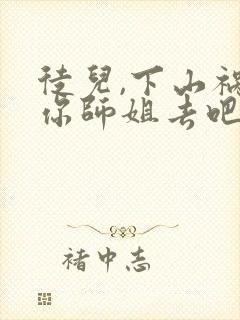 徒兒,下山禍
你師姐去吧
褚中志